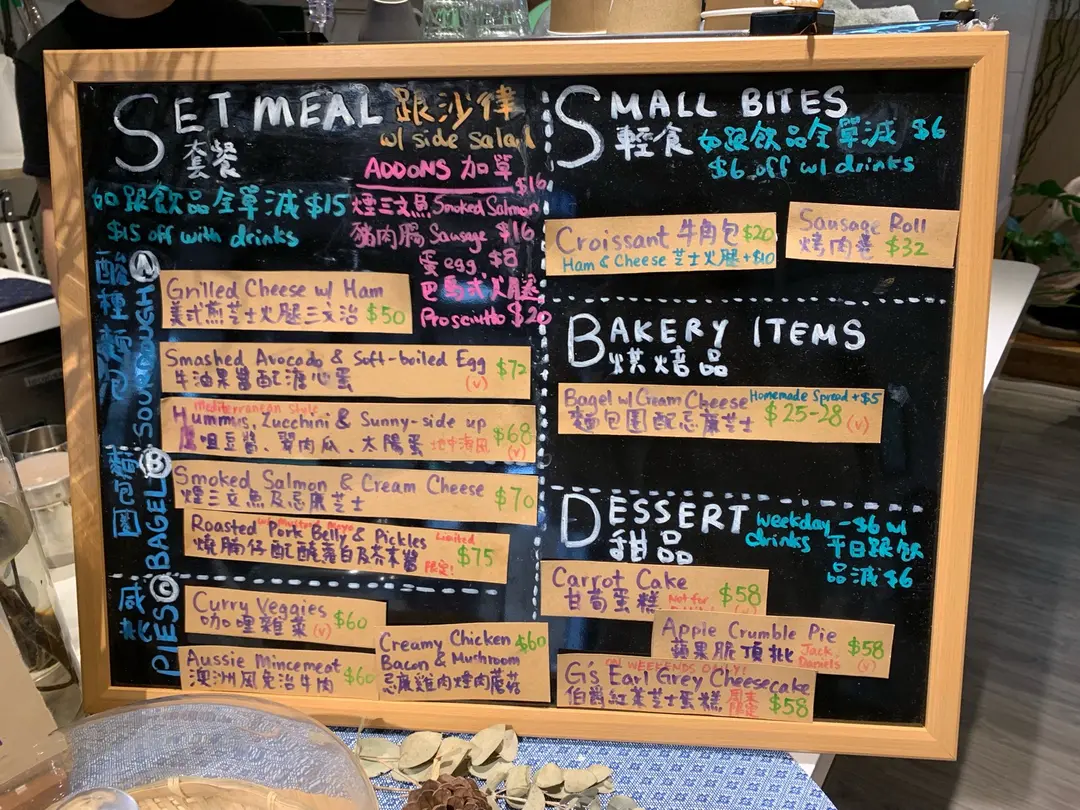 SET MEAL 跟沙律
套餐 w/ side salad
如跟飲品全單減 $15
$15 off with drinks
ADDONS 加單
煙三文魚 Smoked Salmon $16
豬肉腸 Sausage $16
蛋 egg $8
巴馬式火腿
Prosciutto $20
酸種新包 SOURDOUGH Ⓐ
Grilled Cheese w/ Ham
美式煎芝士火腿三文治 $50
Smashed Avocado & Soft-boiled Egg $72
牛油果醬配溏心蛋 (v)
Mediterranean style
Hummus, Zucchini & Sunny-side up $68
鷹咀豆醬、翠肉瓜、太陽蛋 地中海風 (v)
麵包圈 BAGEL Ⓑ
Smoked Salmon & Cream Cheese $70
煙三文魚及忌廉芝士
w/ Mustard Mayo
Roasted Pork Belly & Pickles Limited
燒腩仔配醃蘿白及芥末醬 限定! $75
咸批 PIES Ⓒ
Curry Veggies $60
咖哩雜菜 (v)
Aussie Mincemeat
澳洲風免治牛肉 $60
Creamy Chicken $60
Bacon & Mushroom
忌廉雞肉煙肉蘑菇
SMALL BITES
輕食 如跟飲品全單減 $6
$6 off w/ drinks
Croissant 牛角包 $20
Ham & Cheese 芝士火腿 +$10
Sausage Roll
烤肉卷 $32
BAKERY ITEMS
烘焙品
Bagel w/ Cream Cheese Homemade Spread +$5
麵包圈配忌廉芝士 $25-28 (v)
DESSERT
甜品
weekday -$6 w/
drinks 平日跟飲
品減 $6
Carrot Cake $58
甘荀蛋糕 Not for
Apple Crumble Pie $58
蘋果脆頂批 Jack Daniels (v)
ON WEEKENDS ONLY!
G's Earl Grey Cheesecake
伯爵紅茶芝士蛋糕 周末限定 $58